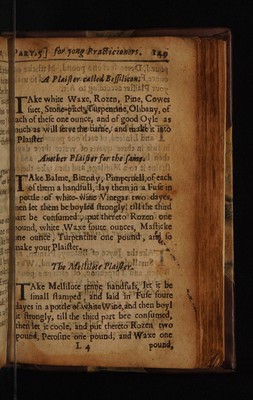 PART.5] for yong Practicioners. 129
A Plaister called Basilicon.
TAke white Waxe, Rozen, Pine, Cowes
suet, Stone-pitch, Turpentine, Olibany, of
each of these one ounce, and of good Oyle as
much as will serve the turne, and make it into
Plaister
Another Plaister for the same.
TAke Balme, Bittony, Pimpernell, of each
of them a handfull, lay them in a Fuse in
pottle of white-wine Vinegar two dayes,
then let them be boyled strongly, till the third
part be consumed, put thereto Rozen one
pound, white Waxe foure ounces, Masticke
one ounce, Turpentine one pound, and so
make your Plaister.
The Mellilote Plaister.
TAke Mellilote tenne handfuls, let it be
small stamped, and laid in Fuse foure
dayes in a pottle of white Wine, and then boyl
it strongly, till the third part bee consumed,
then let it coole, and put thereto Rozen two
pound, Perosine one pound, and Waxe one
L 4 pound,